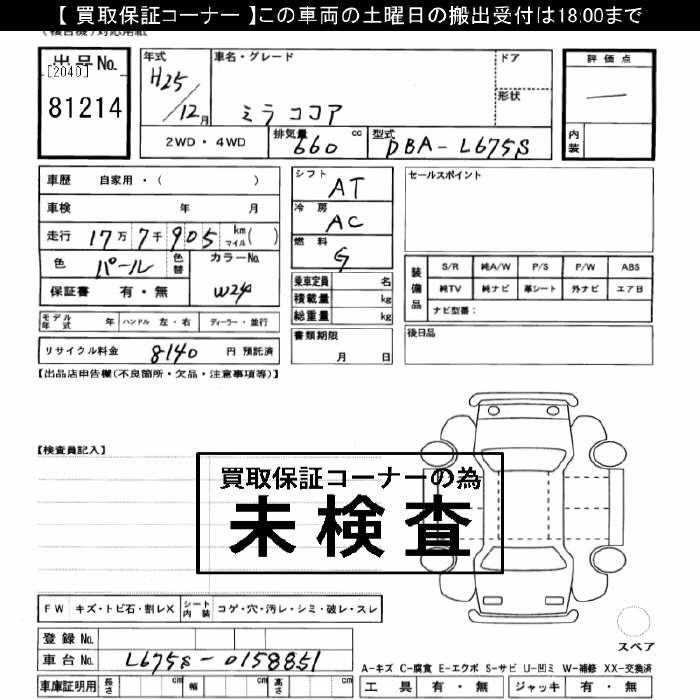 【 買取保証コーナー 】この車両の土曜日の搬出受付は18:00まで
出品No.
[2040]
81214
年式
H25/12月
車名・グレード
ミラココア
ドア
形状
評価点
―
内装
2WD・4WD
排気量
660 cc
型式
DBA-L675S
車歴 自家用・( )
車検 年 月
走行 17万7千905 km マイル( )
色 パール 色替 カラーNo. W24
保証書 有・無
モデル年式 年 ハンドル 左・右 ディーラー・並行
リサイクル料金 8140 円 預託済
シフト AT
冷房 AC
燃料 G
乗車定員 名
積載量 kg
総重量 kg
書類期限
月 日
セールスポイント
装備品 S/R 純A/W P/S P/W ABS
純TV 純ナビ 革シート 外ナビ エアB
ナビ型番:
後日品
【出品店申告欄(不良箇所・欠品・注意事項等)】
【検査員記入】
買取保証コーナーの為
未検査
FW キズ・トビ石・割レX シート内装 コゲ・穴・汚レ・シミ・破レ・スレ
スペア
登録No.
車台No. L675S-0158851
A-キズ C-腐食 E-エクボ S-サビ U-凹ミ W-補修 XX-交換済
車庫証明用 長さ cm 幅 cm 高さ cm
工具 有・無 ジャッキ 有・無